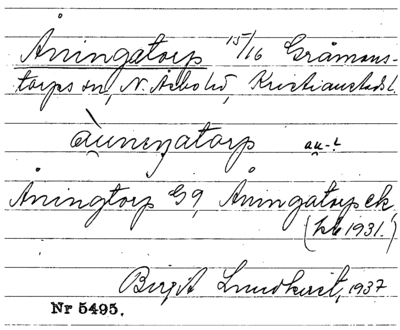 Åningatorp 15/16 Gråmans-
torps sn, N. Åsbo hd, Kristianstads l.
àu̯neŋatorp au̯-?
Åningtorp G9, Åningatorp ek.
(hb 1931.)
Birgit Lundkvist, 1937
Nr 5495.